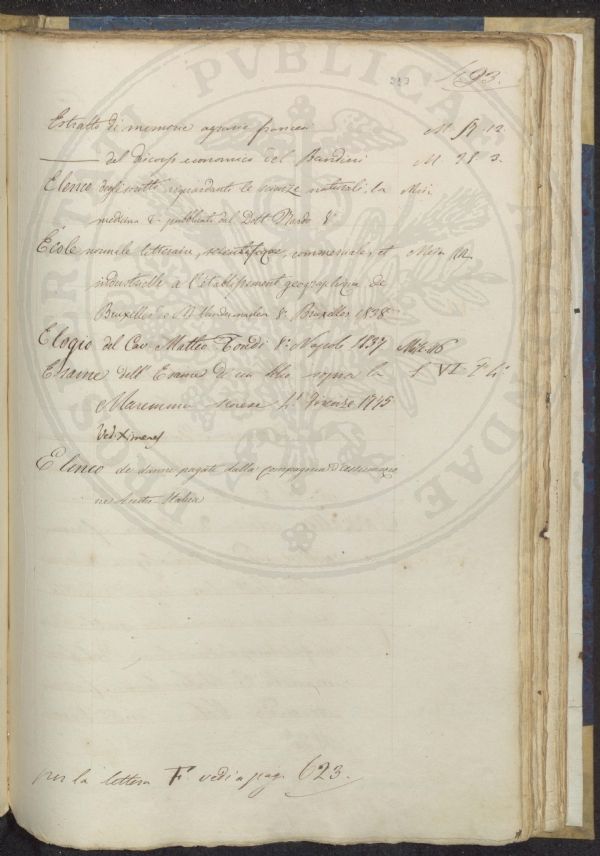 193.
Estratto di memorie agrarie francesi M 17. 12.
— del Discorso economico del Bandini M 28. 3.
Elenco degli scritti risguardanti le scienze naturali, la Misc.
medicina & pubblicati dal Dott Nardo 8°
École normale litteraire, scientifique, commerciale, et Misc
industrielle a l'établissement geographique de
Bruxelles Vandermaelen 8° Bruxelles 1838
Elogio del Cav Matteo Tondi 8° Napoli 1837 Misc. 46
Esame dell'Esame di un libro sopra la S VI
Maremma senese 4° Firenze 1775
Vedi Ximenes
Elenco de danni pagati dalla compagnia d'assicurazione
per la lettera F vedi a pag. 623.